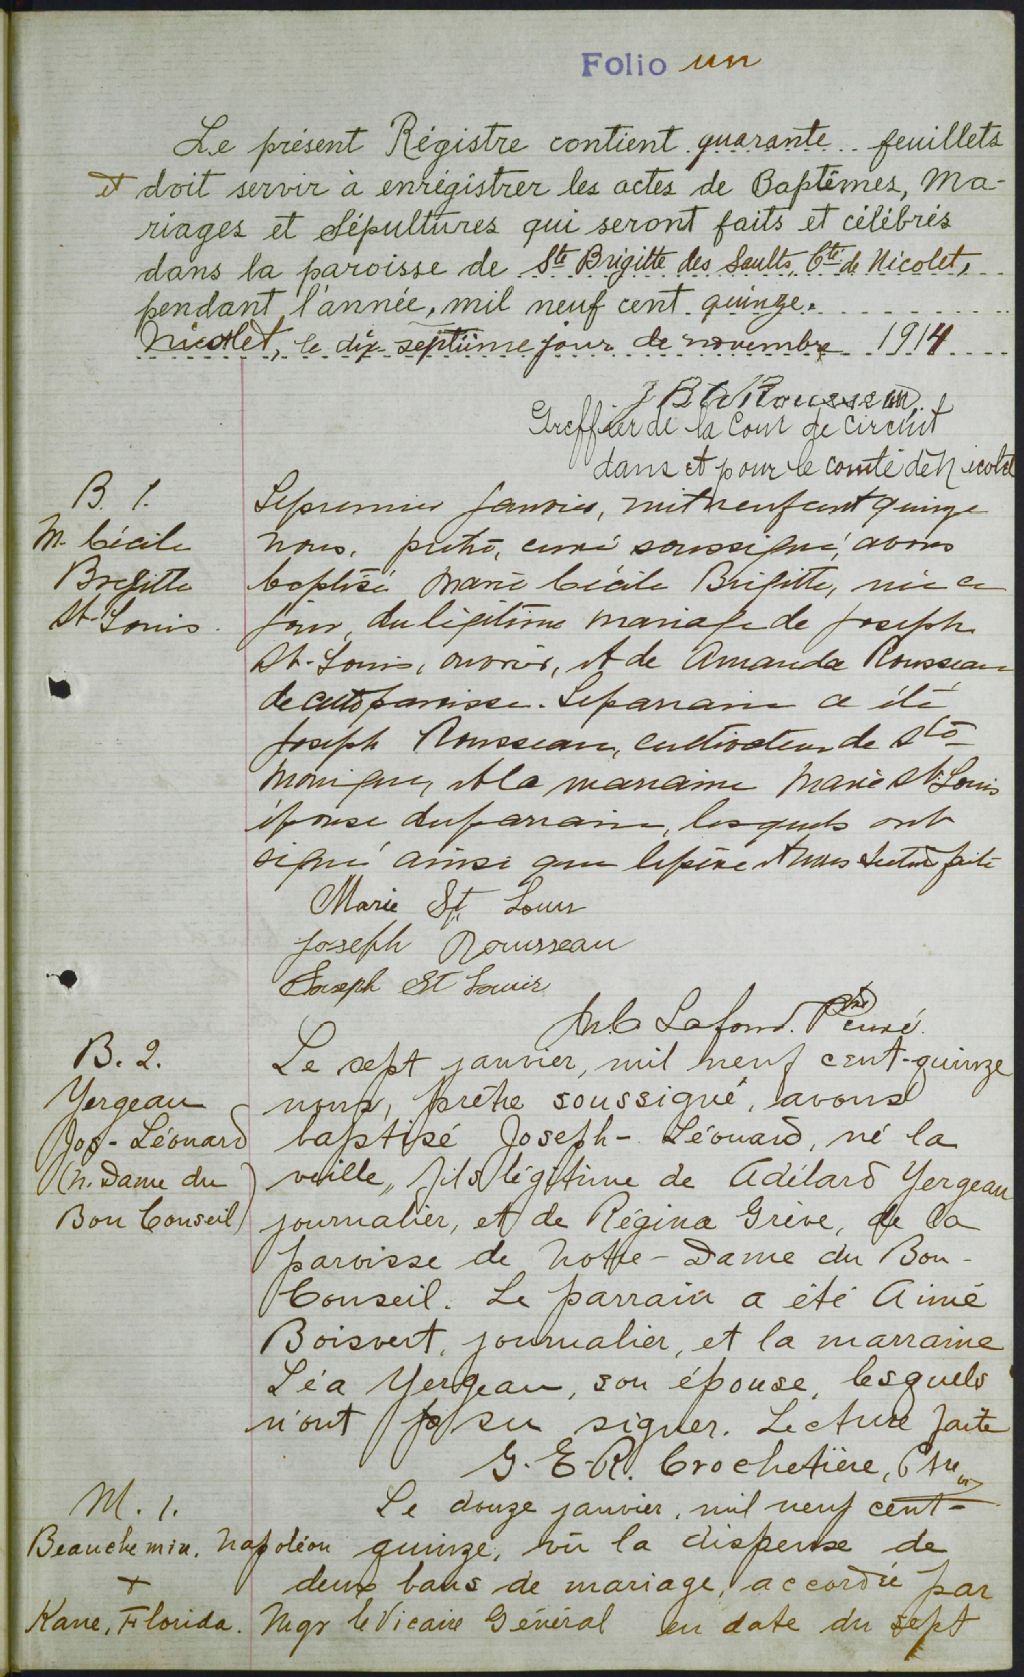 Folio un
Le présent Régistre contient quarante feuillets
et doit servir à enrégistrer les actes de Baptêmes, Ma-
riages et Sépultures qui seront faits et célébrés
dans la paroisse de Ste Brigitte des Saults, Cté de Nicolet,
pendant l'année, mil neuf cent quinze.
Nicolet, le dix-septième jour de novembre 1914
Rousseau
Greffier de la Cour de Circuit
dans et pour le comté de Nicolet
B. 1.
M. Cécile
Brigitte
St-Louis.
Le premier janvier, mil neuf cent quinze
nous, prêtre, curé soussigné, avons
baptisé Marie Cécile Brigitte, née ce
jour, du légitime mariage de Joseph
St-Louis, ouvrier, et de Amanda Rousseau
de cette paroisse. Le parrain a été
Joseph Rousseau, cultivateur de Ste-
Monique, et la marraine Marie St-Louis
épouse du parrain, lesquels ont
signé ainsi que le père et nous lecture faite
Marie St. Louis
Joseph Rousseau
Joseph St Louis
Lafond. Ptre curé.
B. 2.
Yergeau
Jos-Léonard
(N. Dame du
Bon Conseil)
Le sept janvier, mil neuf cent-quinze
nous, prêtre soussigné, avons
baptisé Joseph-Léonard, né la
veille, fils légitime de Adélard Yergeau
journalier, et de Régina Grève, de la
paroisse de Notre-Dame du Bon-
Conseil. Le parrain a été Aimé
Boisvert, journalier, et la marraine
Léa Yergeau, son épouse, lesquels
n'ont su signer. Lecture faite
G. E. R. Crochetière, Ptre
M. 1.
Beauchemin, Napoléon
+
Kane, Florida.
Le douze janvier, mil neuf cent-
quinze, vu la dispense de
deux bans de mariage, accordée par
Mgr le Vicaire Général en date du sept